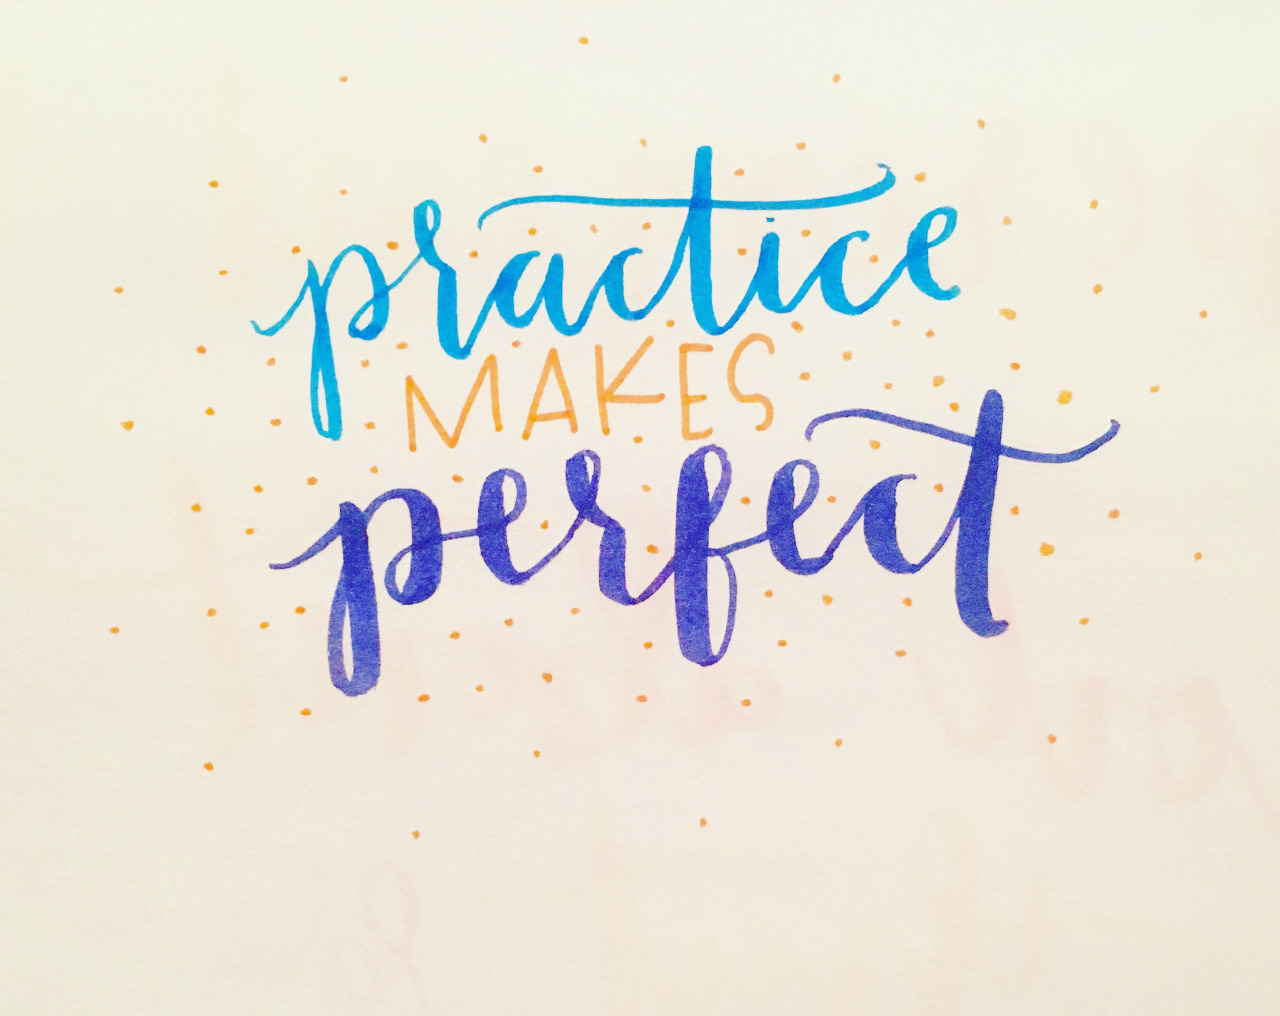 practice
MAKES
perfect